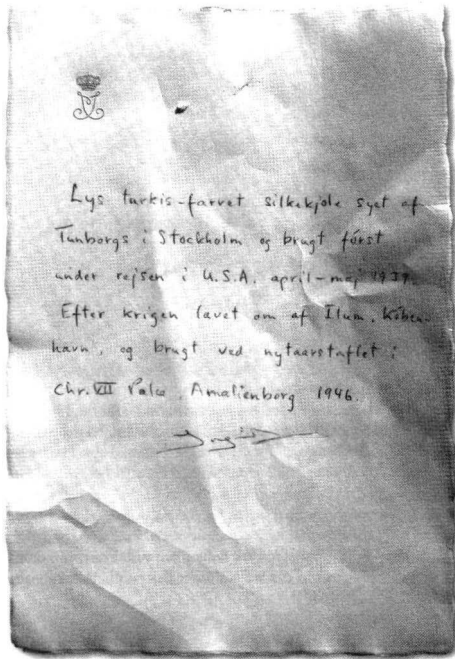 Lys turkis-farvet silkekjole syet af
Tunborgs i Stockholm og brugt först
under rejsen i U.S.A. april-maj 1939.
Efter krigen lavet om af Ilum, Köben-
havn, og brugt ved nytaarstaflet i
Chr. VII Palæ, Amalienborg 1946.
Ingrid